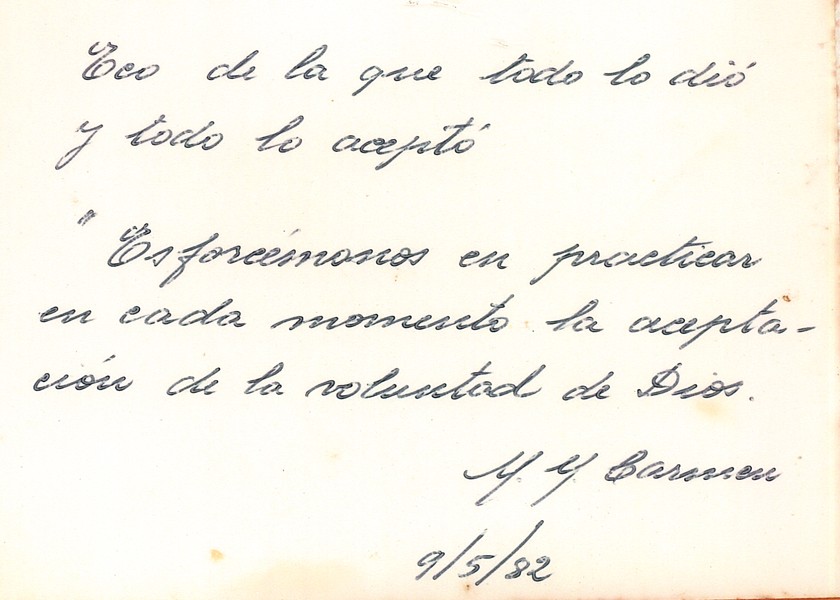 Eco de la que todo lo dió
y todo lo aceptó
" Esforcémonos en practicar
en cada momento la acepta-
ción de la voluntad de Dios.
M. M Carmen
9/5/82